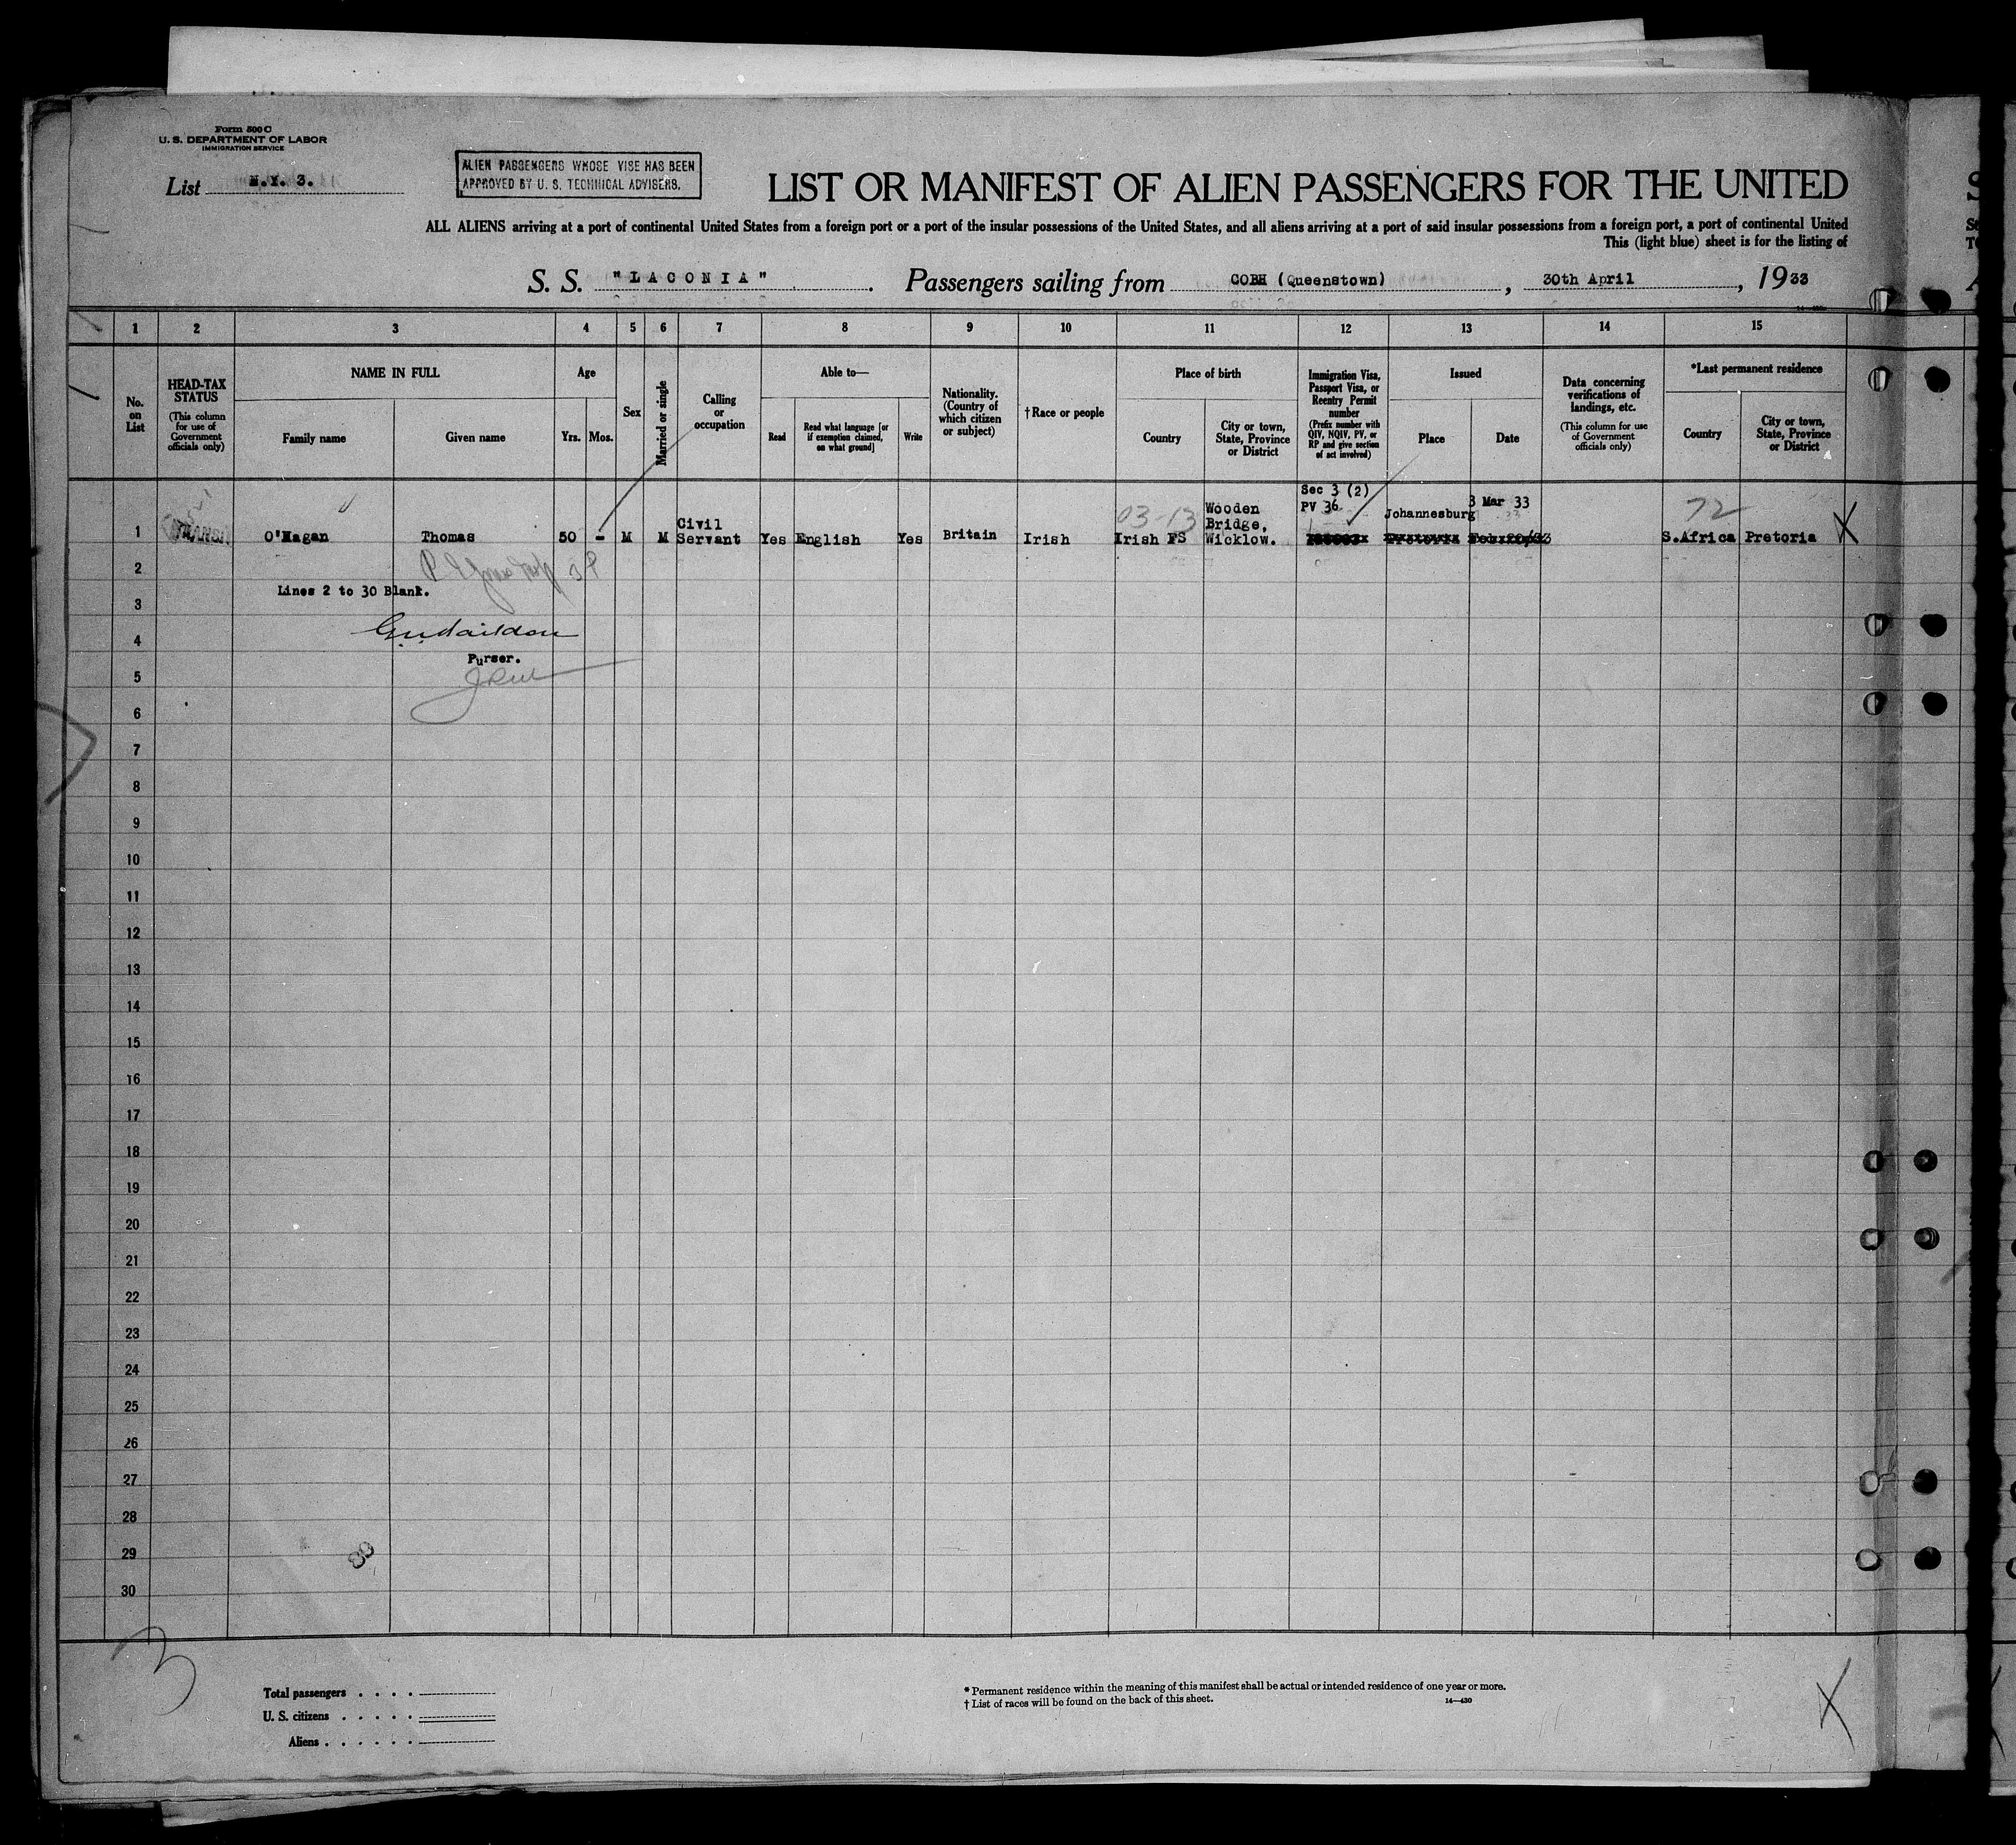 Form 500 C
U. S. DEPARTMENT OF LABOR
IMMIGRATION SERVICE
List N.Y. 3.
ALIEN PASSENGERS WHOSE VISE HAS BEEN
APPROVED BY U. S. TECHNICAL ADVISERS.
LIST OR MANIFEST OF ALIEN PASSENGERS FOR THE UNITED
ALL ALIENS arriving at a port of continental United States from a foreign port or a port of the insular possessions of the United States, and all aliens arriving at a port of said insular possessions from a foreign port, a port of continental United
This (light blue) sheet is for the listing of
S. S. "LACONIA". Passengers sailing from COBH (Queenstown), 30th April, 1933
1 2 3 4 5 6 7 8 9 10 11 12 13 14 15
No. on List
HEAD-TAX STATUS
(This column for use of Government officials only)
NAME IN FULL
Family name
Given name
Age
Yrs.
Mos.
Sex
Married or single
Calling or occupation
Able to—
Read
Read what language [or if exemption claimed, on what ground]
Write
Nationality. (Country of which citizen or subject)
†Race or people
Place of birth
Country
City or town, State, Province or District
Immigration Visa, Passport Visa, or Reentry Permit number
(Prefix number with QIV, NQIV, PV, or RP and give section of act involved)
Issued
Place
Date
Data concerning verifications of landings, etc.
(This column for use of Government officials only)
*Last permanent residence
Country
City or town, State, Province or District
Sec 3 (2)
PV 36
Johannesburg
3 Mar 33
03-13
72
1 TRANSIT O'Hagan Thomas 50 - M M Civil Servant Yes English Yes Britain Irish Irish FS Wooden Bridge, Wicklow. S.Africa Pretoria X
2
Lines 2 to 30 Blank.
3
4
Purser.
5
6
7
8
9
10
11
12
13
14
15
16
17
18
19
20
21
22
23
24
25
26
27
28
29
30
3
Total passengers
U. S. citizens
Aliens
* Permanent residence within the meaning of this manifest shall be actual or intended residence of one year or more.
† List of races will be found on the back of this sheet.
14—430
X